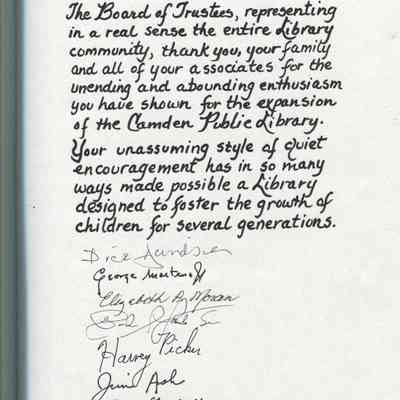 The Board of Trustees, representing
in a real sense the entire Library
community, thank you, your family
and all of your associates for the
unending and abounding enthusiasm
you have shown for the expansion
of the Camden Public Library.
Your unassuming style of quiet
encouragement has in so many
ways made possible a Library
designed to foster the growth of
children for several generations.
George
Elizabeth Moran
Harvey Picker
Ash